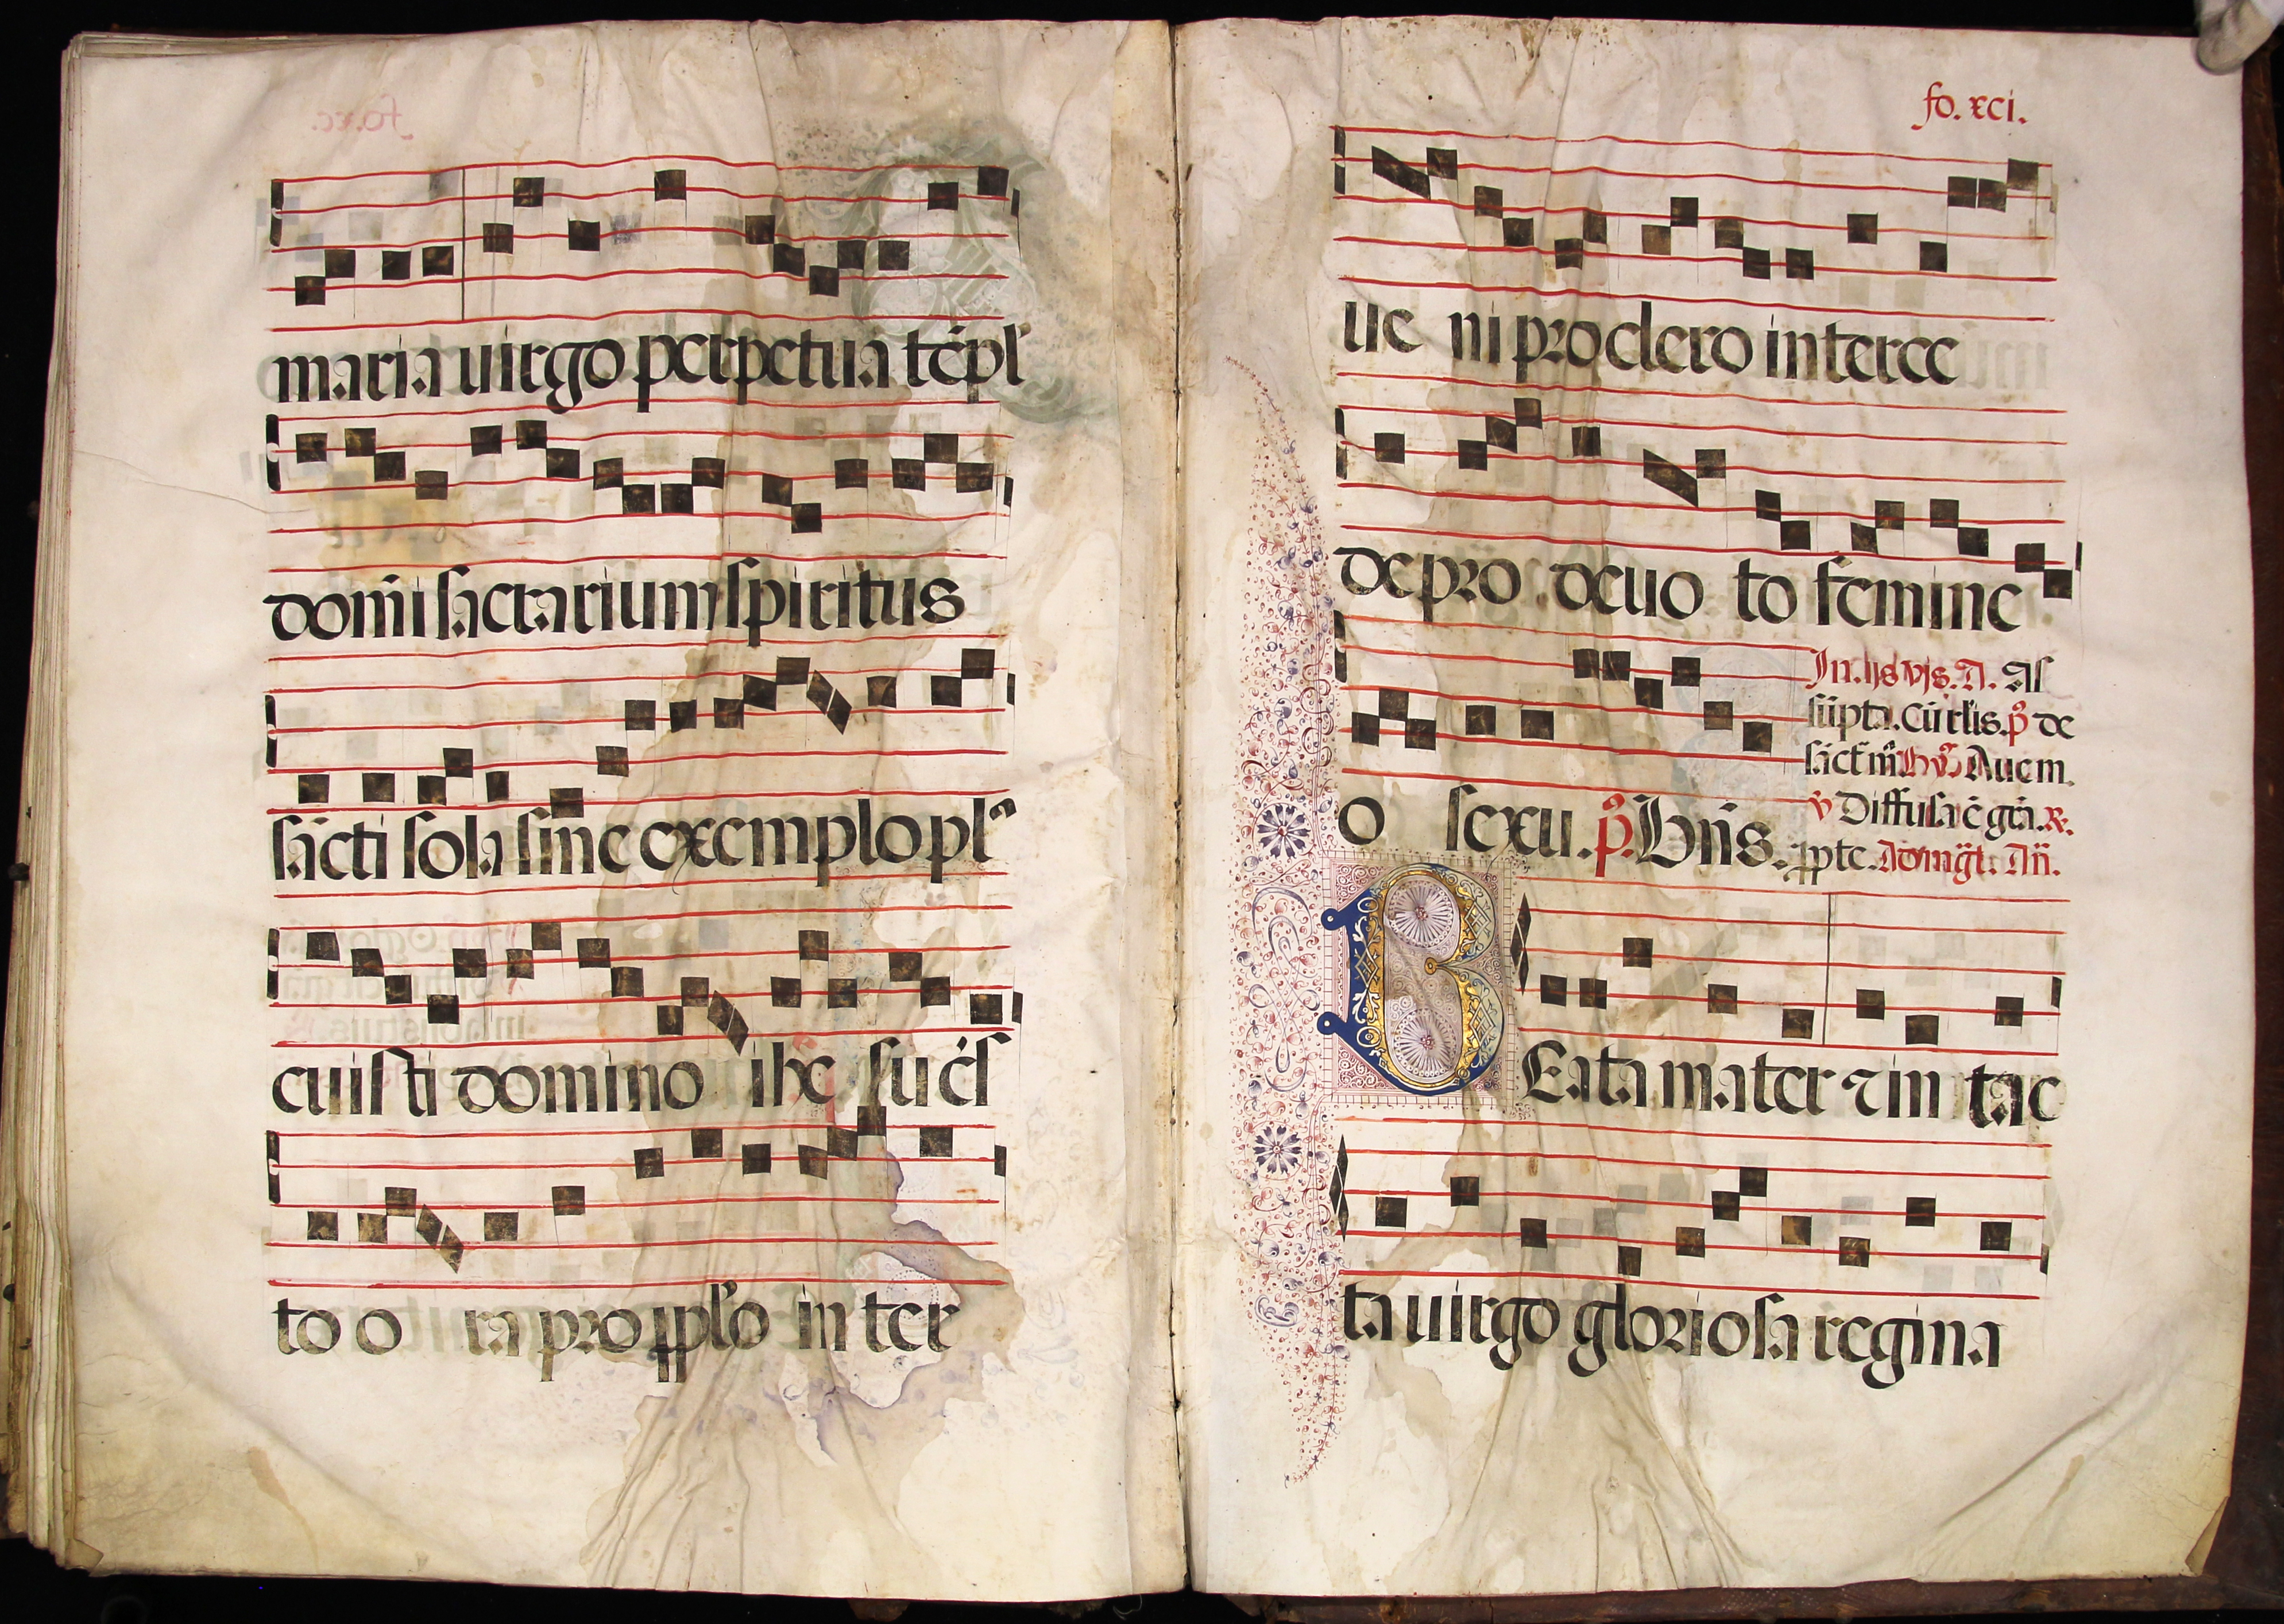 maria uirgo perpetua tēpl'
dom̄i sacrarium spiritus
sācti sola sine exemplo pl
cuisti domino ihe su cſ
to o ra pro ppl'o in ter
fo. xci.
ue ni pro clero interce
de pro deuo to femine
o sexu. p̊. Bn̄s.
In. ijs vjs. A. As
sūpta. cū rl'is. p̊ de
sāct m̄ Aue m.
v̊ Diffusa ē gr̄a. R.
ppte. Ad mḡt. An̄.
BEata mater ⁊ in tac
ta uirgo gloriosa regina